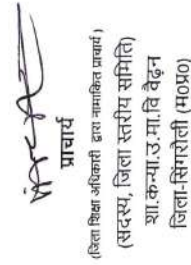 प्राचार्य
(जिला शिक्षा अधिकारी द्वारा नामांकित प्राचार्य)
(सदस्य, जिला स्तरीय समिति)
शा.कन्या.उ.मा.वि वैढ़न
जिला-सिंगरौली (म०प्र०)